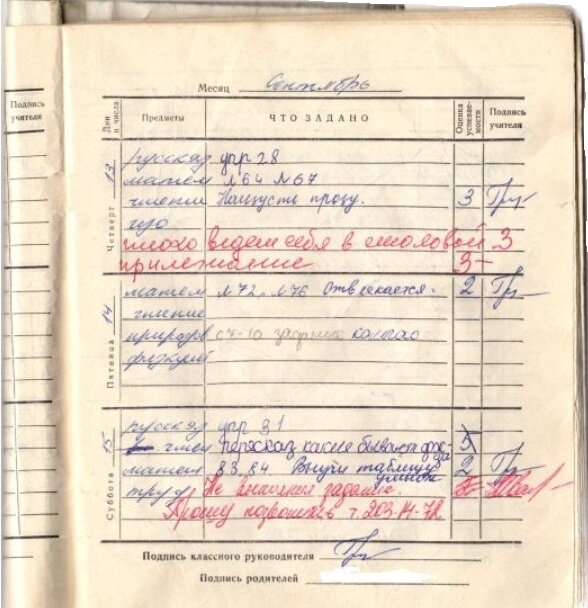 Месяц Сентябрь
Подпись учителя
Дни и числа Предметы ЧТО ЗАДАНО Оценка успеваемости Подпись учителя
Четверг 13
русская упр 28
матем №64 №67
чтение Наизусть прозу. 3
плохо ведет себя в столовой 3
прилежание 3-
Пятница 14
матем №72, №76 Отвлекается. 2
чтение
природ с 7-10
физкул
Суббота 15
русская упр 31
чтен пересказ какие бывают 5
матем 83, 84. Выучи таблицу умнож 2
труд Не выполнил задание.
Прошу позвонить т. 203-14-72
Подпись классного руководителя
Подпись родителей